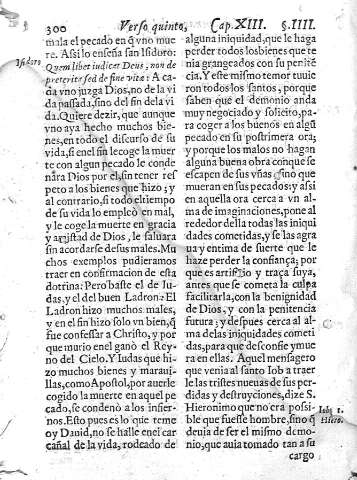 300 Verso quinto, Cap. XIII. §. IIII.
mala el pecado en q̃ vno mue
re. Asi lo enseña san Isidoro:
Isidoro
Quem libet iudicat Deus, non de
preterito sed de fine vitæ: A ca
da vno juzga Dios, no de la vi
da passada, sino del fin dela vi
da. Quiere dezir, que aunque
vno aya hecho muchos bie-
nes, en todo el discurso de su
vida, si enel fin le coge la muer
te con algun pecado le conde
nàra Dios por el, sin tener res
peto a los bienes que hizo; y al
contrario, si todo el tiempo
de su vida lo empleò en mal,
y le coge la muerte en gracia
y amistad de Dios, le saluara
sin acordarse de sus males. Mu
chos exemplos pudieramos
traer en confirmacion de esta
dotrina: Pero baste el de Iu-
das, y el del buen Ladron: El
Ladron hizo muchos males,
y en el fin hizo solo vn bien, q̃
fue confessar a Christo, y por
que murio en el ganò el Rey-
no del Cielo. Y Iudas que hi-
zo muchos bienes y maraui-
llas, como Apostol, por auerle
cogido la muerte en aquel pe
cado, se condenò a los infier-
nos. Esto pues es lo que teme
oy Dauid, no se halle en el car
cañal de la vida, rodeado de
alguna iniquidad, que le haga
perder todos los bienes que te
nia grangeados con su peniten
cia. Y este mismo temor tuuie
ron todos los santos, porque
saben que el demonio anda
muy negociado y solicito, pa-
ra coger a los buenos en algũ
pecado en su postrimera ora;
y porque los malos no hagan
alguna buena obra con que se
escapen de sus vñas, sino que
mueran en sus pecados: y asi
en aquella ora cerca a vn al-
ma de imaginaciones, pone al
rededor della todas las iniqui
dades cometidas, y se las agra
ua y entima de suerte que le
haze perder la confiança; por
que es artificio y traça suya,
antes que se cometa la culpa
facilitarla, con la benignidad
de Dios, y con la penitencia
futura; y despues cerca al al-
ma delas iniquidades cometi
das, para que desconfie y mue
ra en ellas. Aquel mensagero
que venia al santo Iob a traer
le las tristes nueuas de sus per-
didas y destruyciones, dize S.
Hieronimo que no era possi-
Iob 1.
ble que fuesse hombre, sino q̃
Hiero.
deuia de ser el mismo demo-
nio, que auia tomado tan a su
cargo